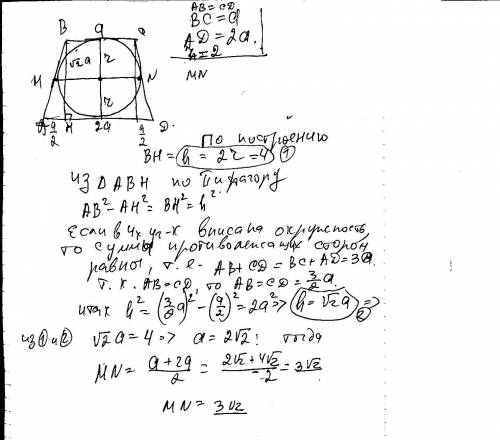 AB=CD
BC=a
AD=2a
r=2
MN
B a C
√2a r
M N
r
A a/2 H 2a a/2 D.
По построению
BH= h = 2r =4 ①
Из ΔABH по Пифагору
AB²-AH²=BH²=h².
Если в 4х уг-к вписана окружность
то суммы противолежащих сторон
равны, т.е. AB+CD=BC+AD=3a.
т.к. AB=CD, то AB=CD=3/2a.
итак h²=(3/2a)²-(a/2)²=2a²=> h=√2a => ②
из ① и ② √2a=4=> a=2√2! тогда
MN= a+2a/2 = 2√2+4√2/2 = 3√2
MN = 3√2